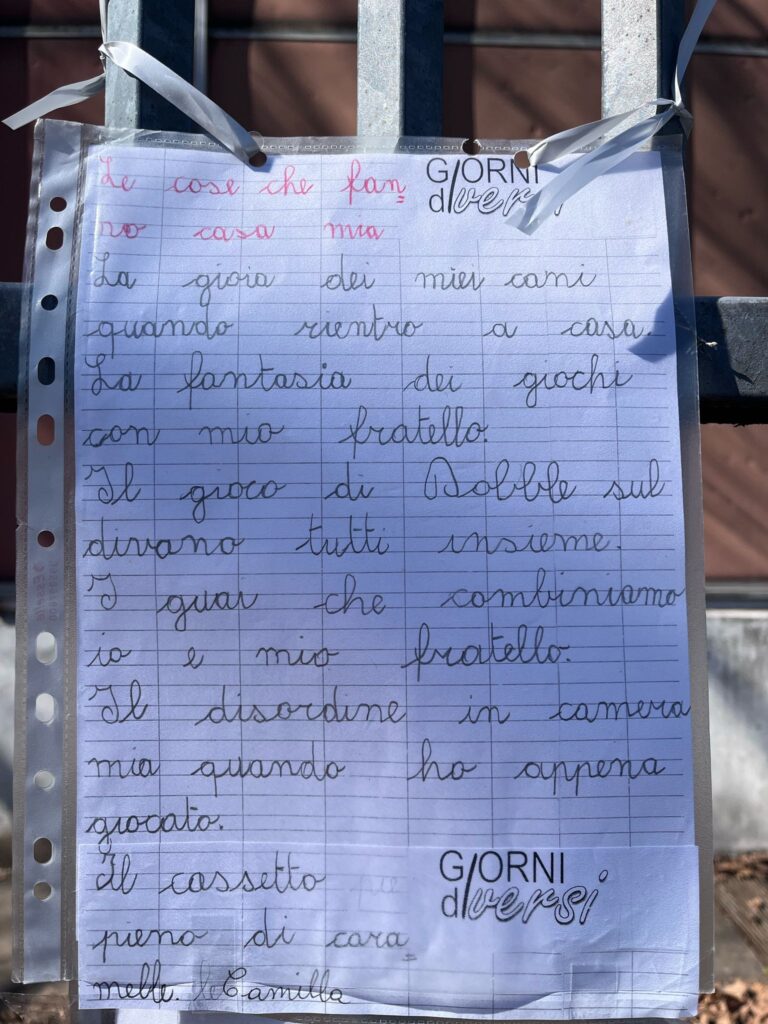 Le cose che fan=
no casa mia
GIORNI
diversi
La gioia dei miei cani
quando rientro a casa.
La fantasia dei giochi
con mio fratello.
Il gioco di Dobble sul
divano tutti insieme.
I guai che combiniamo
io e mio fratello.
Il disordine in camera
mia quando ho appena
giocato.
Il cassetto
pieno di cara=
melle. Camilla
GIORNI
diversi